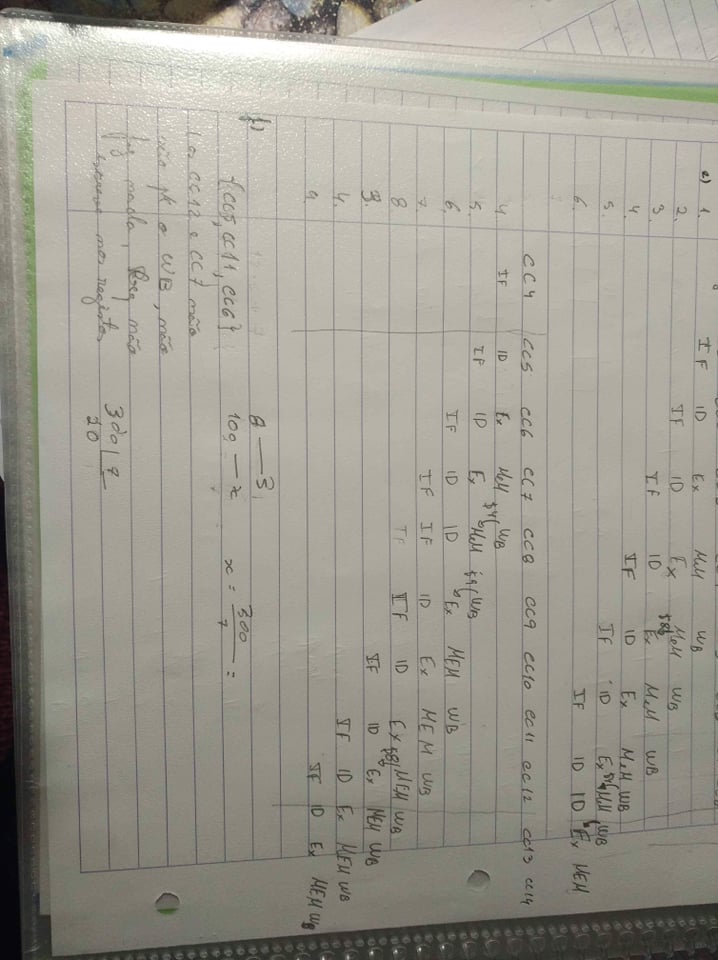 e) 1. IF ID Ex MeM WB
2. IF ID Ex MeM WB
3 IF ID $8 Ex MeM WB
4 IF ID Ex MeM WB
5. IF ID Ex MeM WB
6. IF ID ID Ex MEM
CC4 CC5 CC6 CC7 CC8 CC9 CC10 CC11 CC12 CC13 CC14
4 IF ID Ex MeM WB
5. IF ID Ex $4 MeM WB
6. IF ID ID Ex MEM WB
7. IF IF ID Ex MEM WB
8 IF IF ID Ex $8 MEM WB
3. IF ID Ex MEM WB
4. IF ID Ex MEM WB
9. IF ID Ex MEM WB
f)
8 — 3
{CC5, CC11, CC6} 100 — x x = 300/7 =
CC12 e CC7 não
são pk o WB, não
faz nada, não
escreve nos registos 300 | 7
20